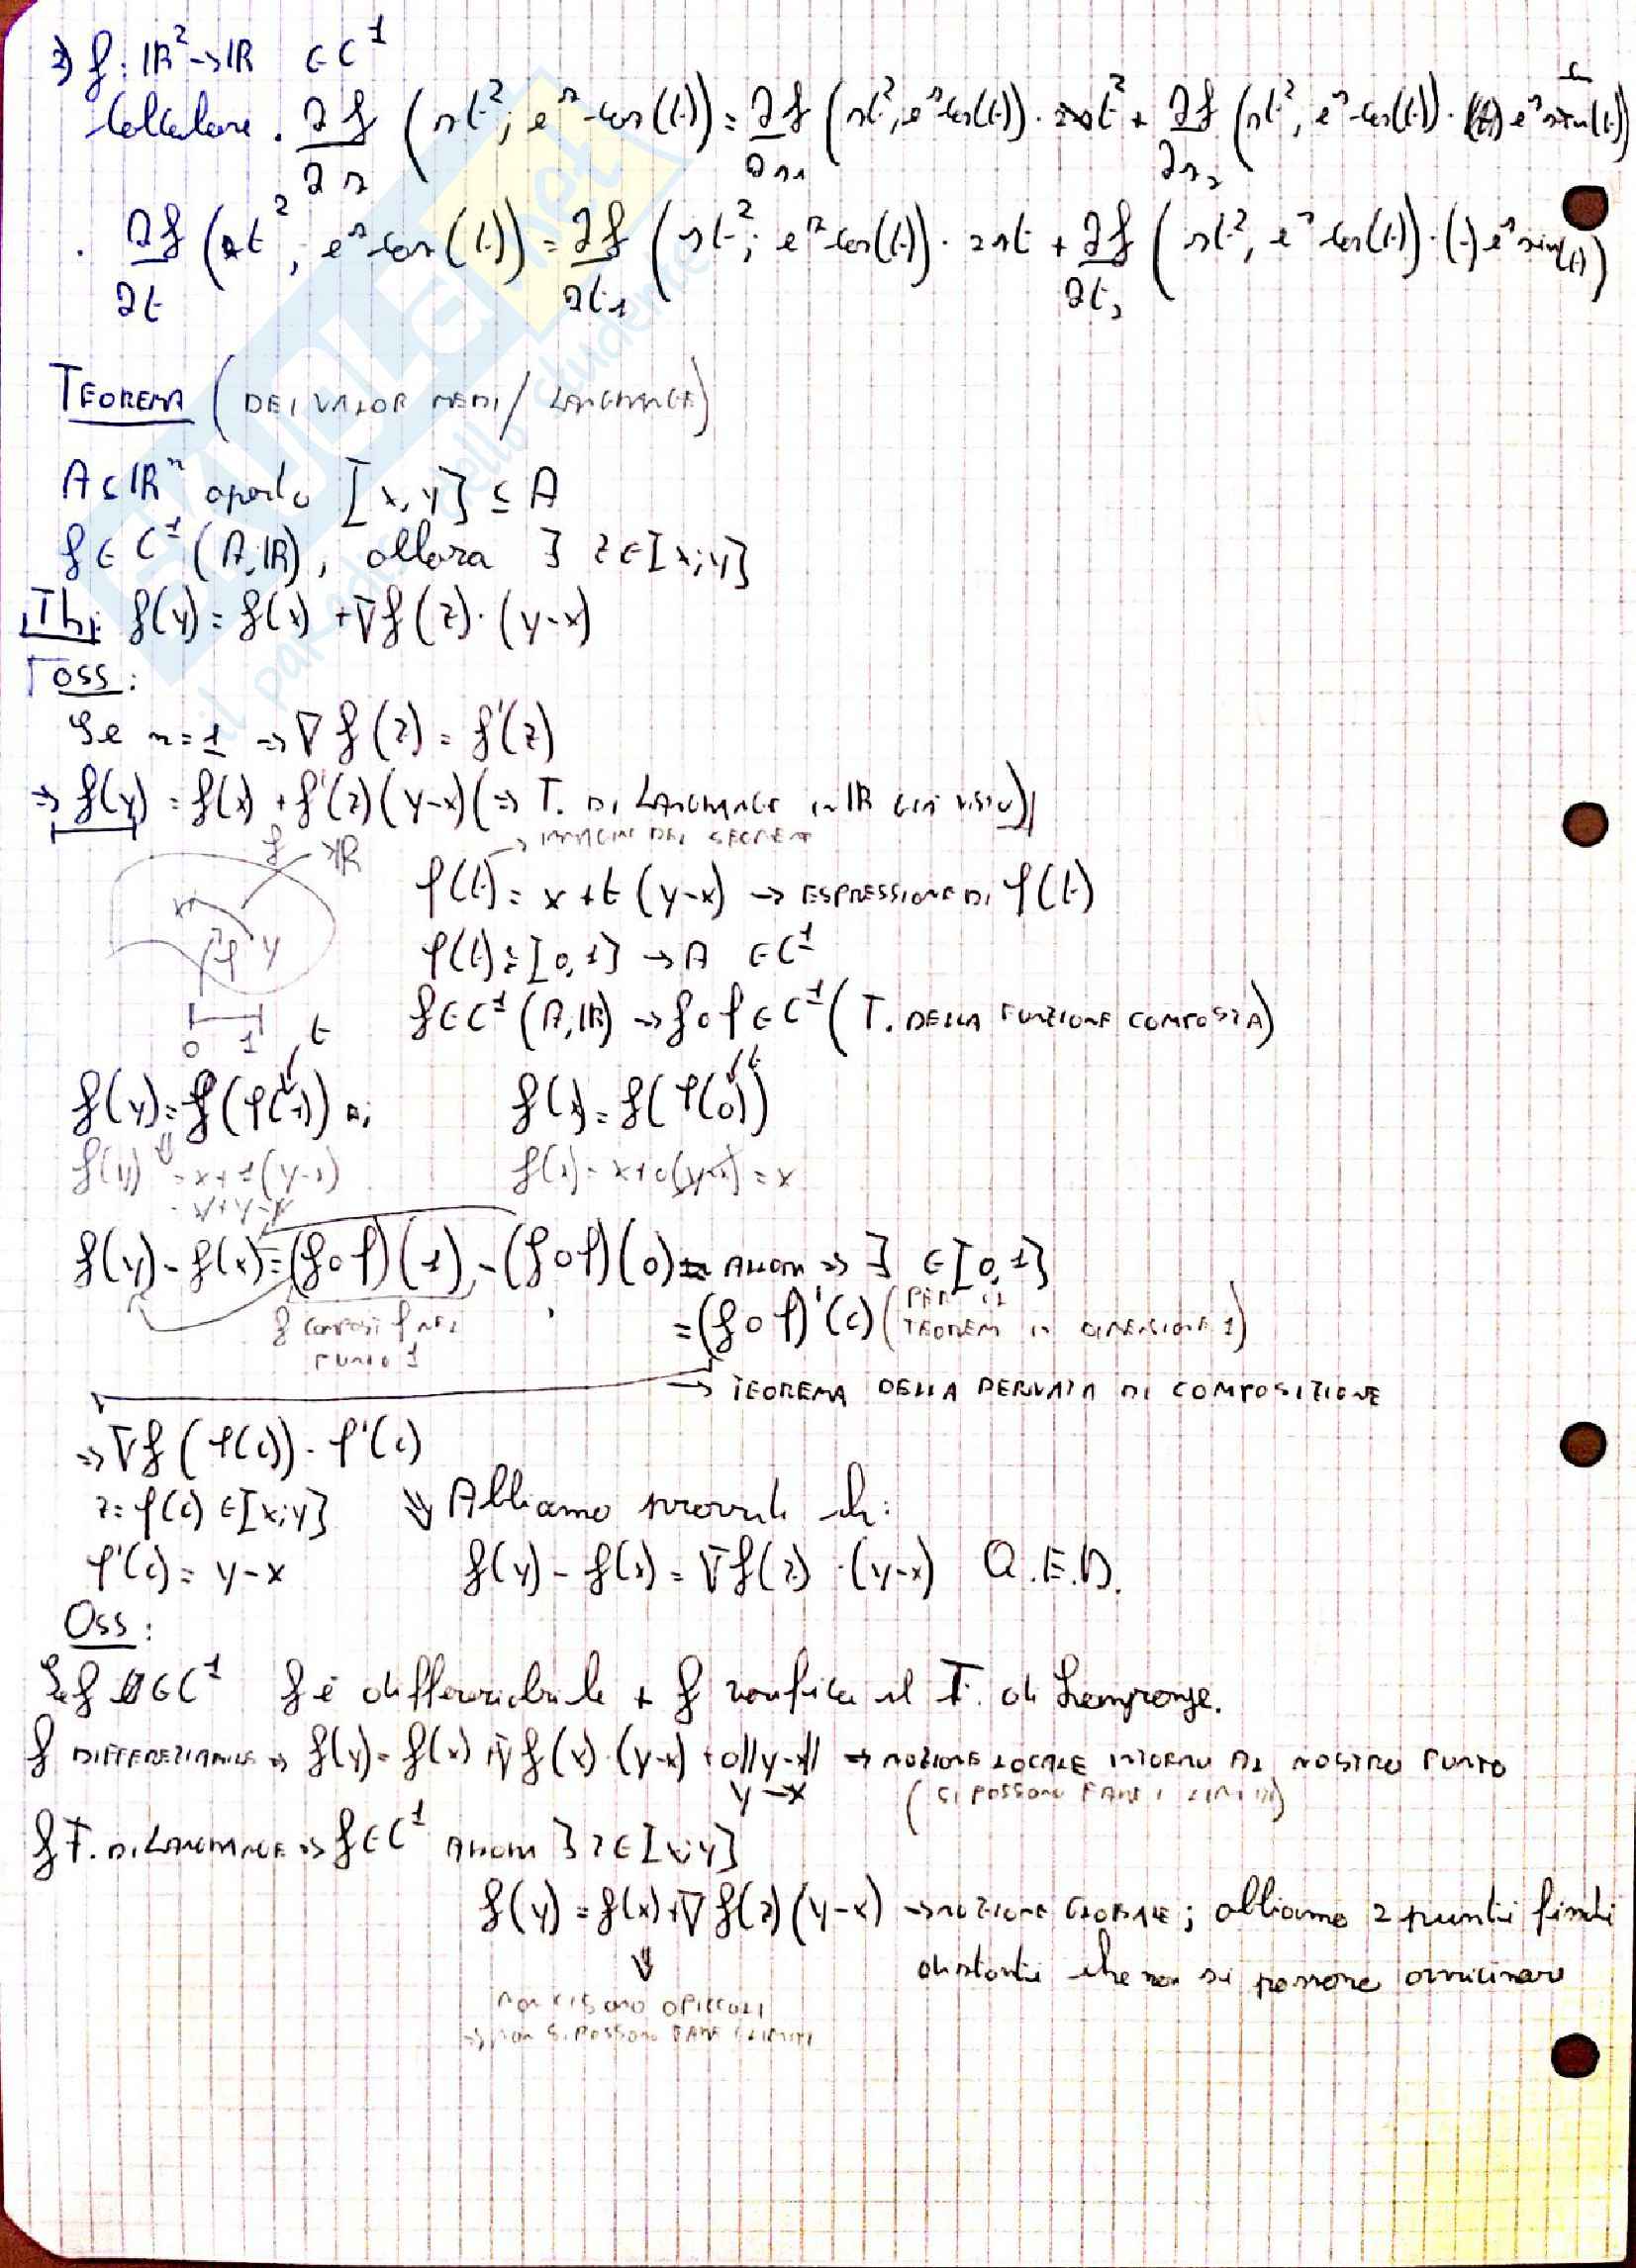 2) f: ℝ² → ℝ ∈ C¹
Calcolare · ∂f/∂s (st²; eˢ cos(t)) = ∂f/∂s₁ (st², eˢ cos(t)) · t² + ∂f/∂s₂ (st², eˢ cos(t)) · eˢ (t)
· ∂f/∂t (st²; eˢ cos(t)) = ∂f/∂t₁ (st²; eˢ cos(t)) · 2st + ∂f/∂t₂ (st², eˢ cos(t)) · (-) eˢ sin(t)
TEOREMA (DEI VALOR MEDI / LAGRANGE)
A ⊆ ℝⁿ aperto [x, y] ⊆ A
f ∈ C¹ (A, ℝ), allora ∃ z ∈ [x; y]
Th: f(y) = f(x) + ∇f(z) · (y-x)
OSS:
Se n = 1 ⇒ ∇f(z) = f'(z)
⇒ f(y) = f(x) + f'(z)(y-x) (⇒ T. DI LAGRANGE IN ℝ GIÀ VISTO)
→ IMMAGINE DEL SEGMENT
f ℝ
φ(t) = x + t(y-x) → ESPRESSIONE DI φ(t)
x φ y
φ(t): [0, 1] → A ∈ C¹
f ∈ C¹ (A, ℝ) → f∘φ ∈ C¹ (T. DELLA FUNZIONE COMPOSTA)
0 1 t
f(y) = f(φ(1)) t
f(x) = f(φ(0))
f(y) = x + 1(y-x)
= x + y - x
f(x) = x + 0(y-x) = x
f(y) - f(x) = (f∘φ)(1) - (f∘φ)(0) = ALLORA ⇒ ∃ ∈ [0, 1]
f COMPOSTO φ NEL PUNTO 1
= (f∘φ)'(c) (PER IL TEOREMA IN DIMENSIONE 1)
→ TEOREMA DELLA DERIVATA DI COMPOSIZIONE
⇒ ∇f(φ(c)) · φ'(c)
z = φ(c) ∈ [x; y] ⇓ Abbiamo provato ch:
φ'(c) = y-x f(y) - f(x) = ∇f(z) · (y-x) Q.E.D.
Oss:
Se f ∈ C¹ f è differenziabile + f verifica il T. di Lagrange.
f DIFFERENZIABILE ⇒ f(y) = f(x) + ∇f(x) · (y-x) + o||y-x|| → NOZIONE LOCALE INTORNO AL NOSTRO PUNTO
y → x (SI POSSONO FARE I LIMITI)
f T. DI LAGRANGE ⇒ f ∈ C¹ ALLORA ∃ z ∈ [x; y]
f(y) = f(x) + ∇f(z)(y-x) → NOZIONE GLOBALE; abbiamo 2 punti finiti
distanti che non si possono avvicinare
⇓
NON CI SONO O PICCOLI
⇒ NON SI POSSONO FARE I LIMITI